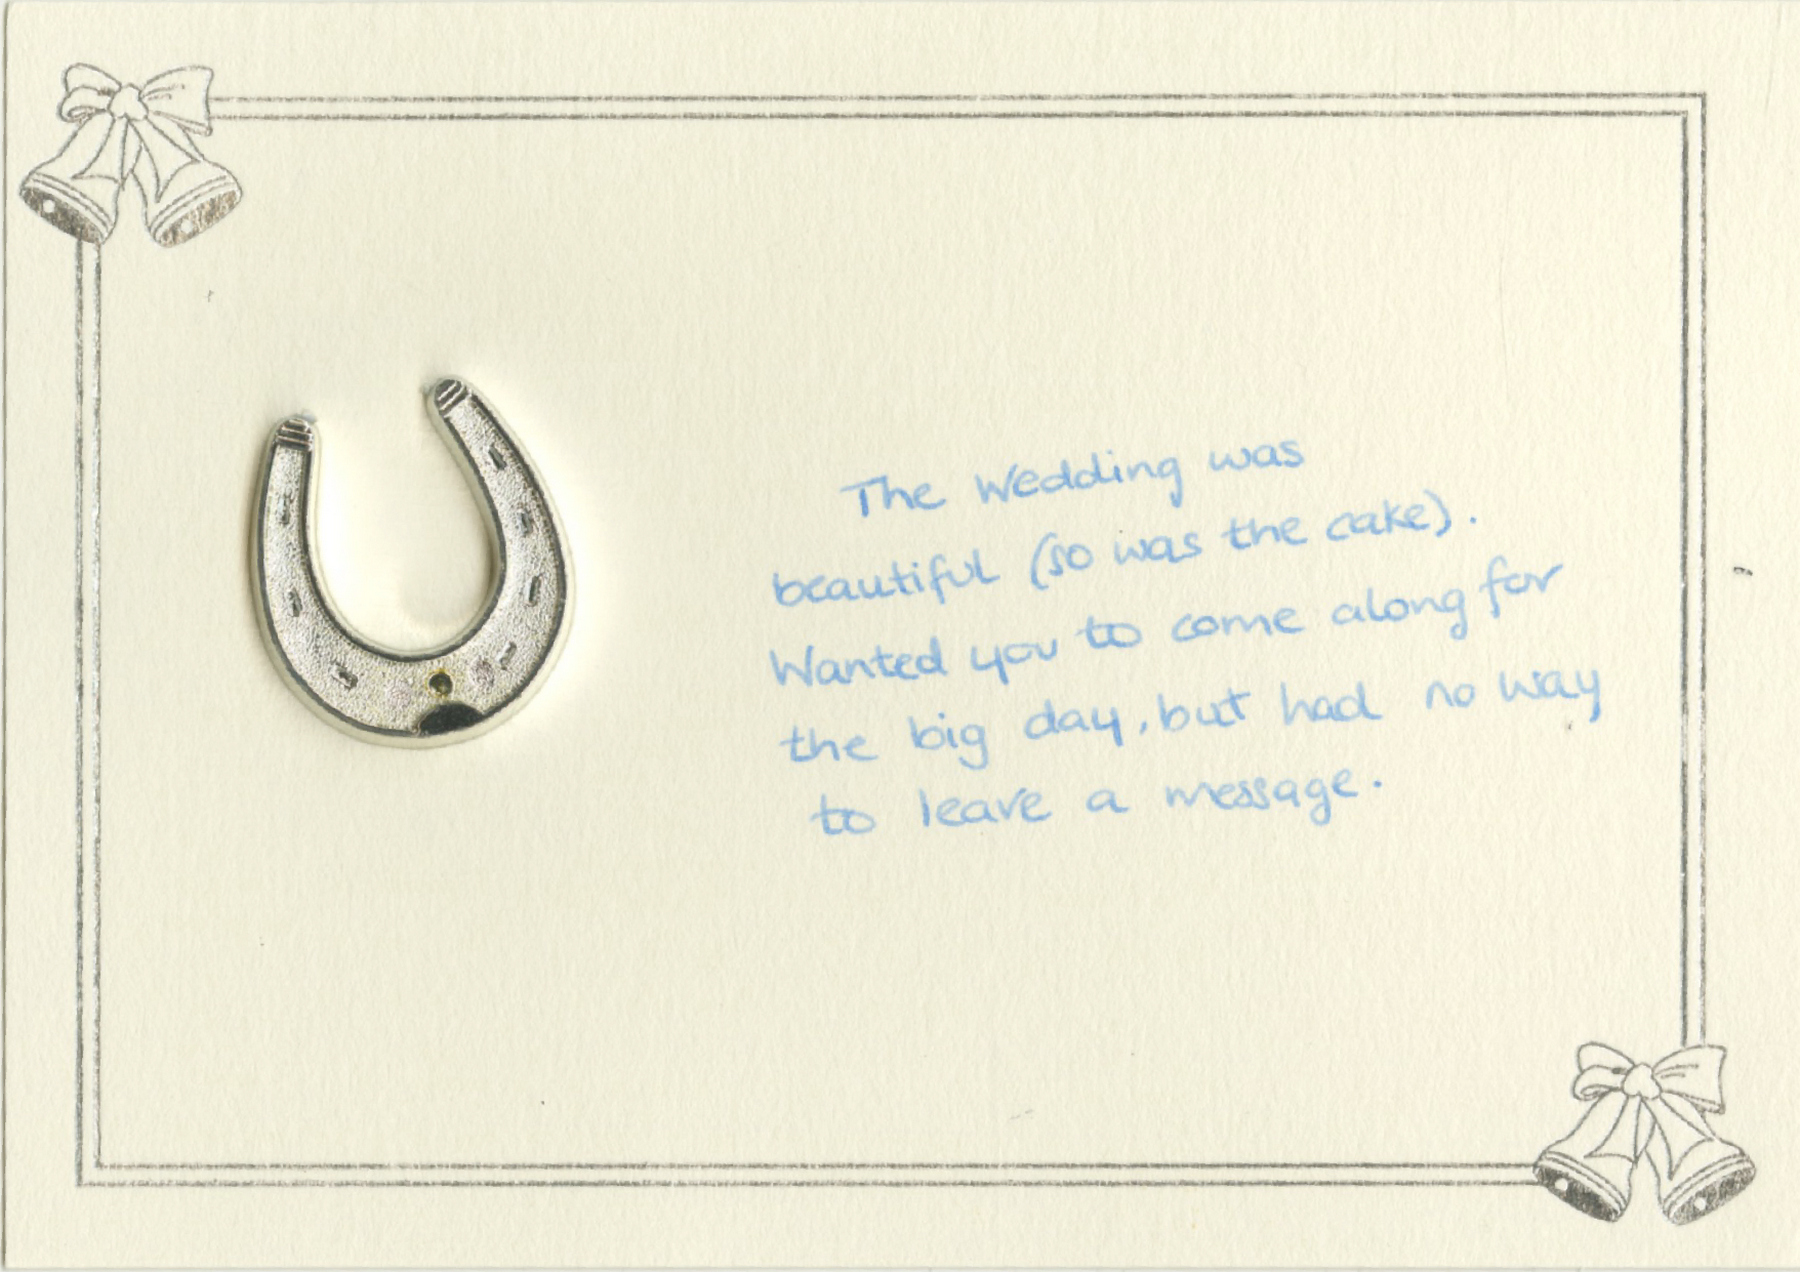 The Wedding was
beautiful (so was the cake).
Wanted you to come along for
the big day, but had no way
to leave a message.